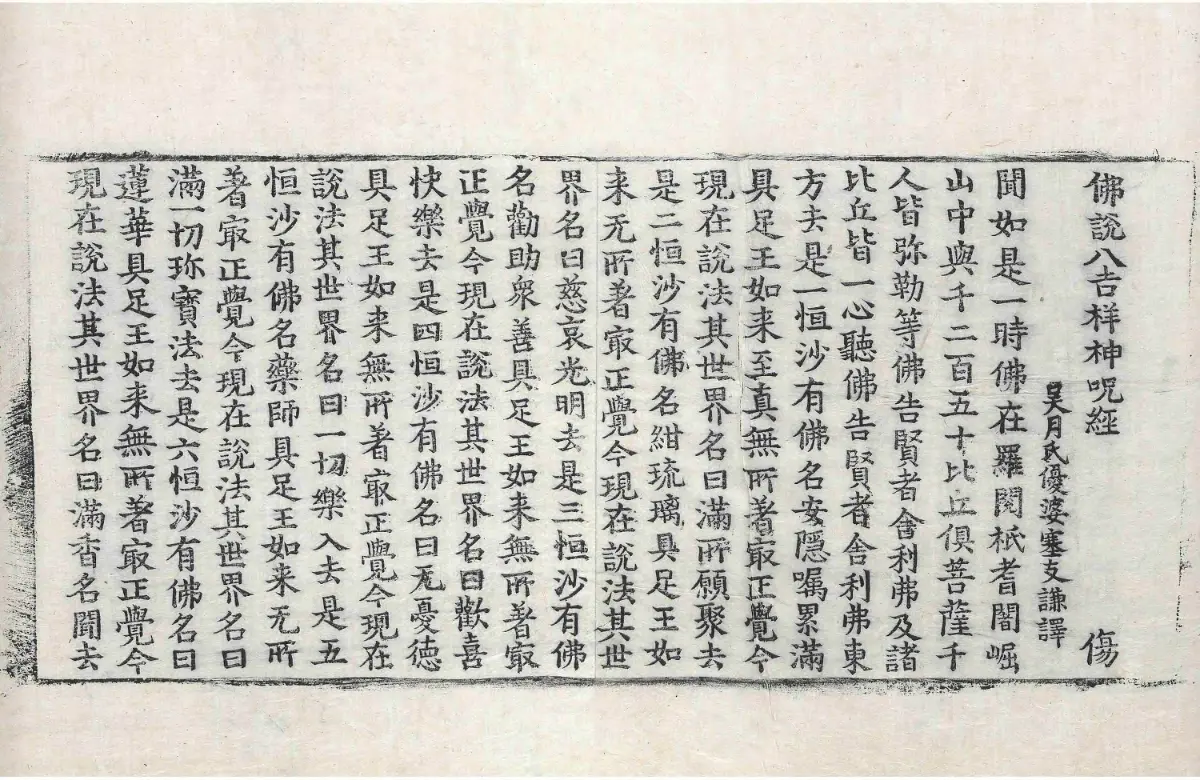 佛說八吉祥神呪經 傷
吴月氏優婆塞支謙譯
聞如是一時佛在羅閱祇耆闍崛
山中與千二百五十比丘俱菩薩千
人皆弥勒等佛告賢者舍利弗及諸
比丘皆一心聽佛告賢者舍利弗東
方去是一恒沙有佛名安隱嘱累滿
具足王如来至真無所著㝡正覺今
現在說法其世界名曰滿所願聚去
是二恒沙有佛名紺琉璃具足王如
来无所著㝡正覺今現在說法其世
界名曰慈哀光明去是三恒沙有佛
名勸助衆善具足王如来無所著㝡
正覺今現在說法其世界名曰歡喜
快樂去是四恒沙有佛名曰无憂德
具足王如来無所著㝡正覺今現在
說法其世界名曰一切樂入去是五
恒沙有佛名藥師具足王如来无所
著㝡正覺今現在說法其世界名曰
滿一切珎寶法去是六恒沙有佛名曰
蓮華具足王如来無所著㝡正覺今
現在說法其世界名曰滿香名聞去